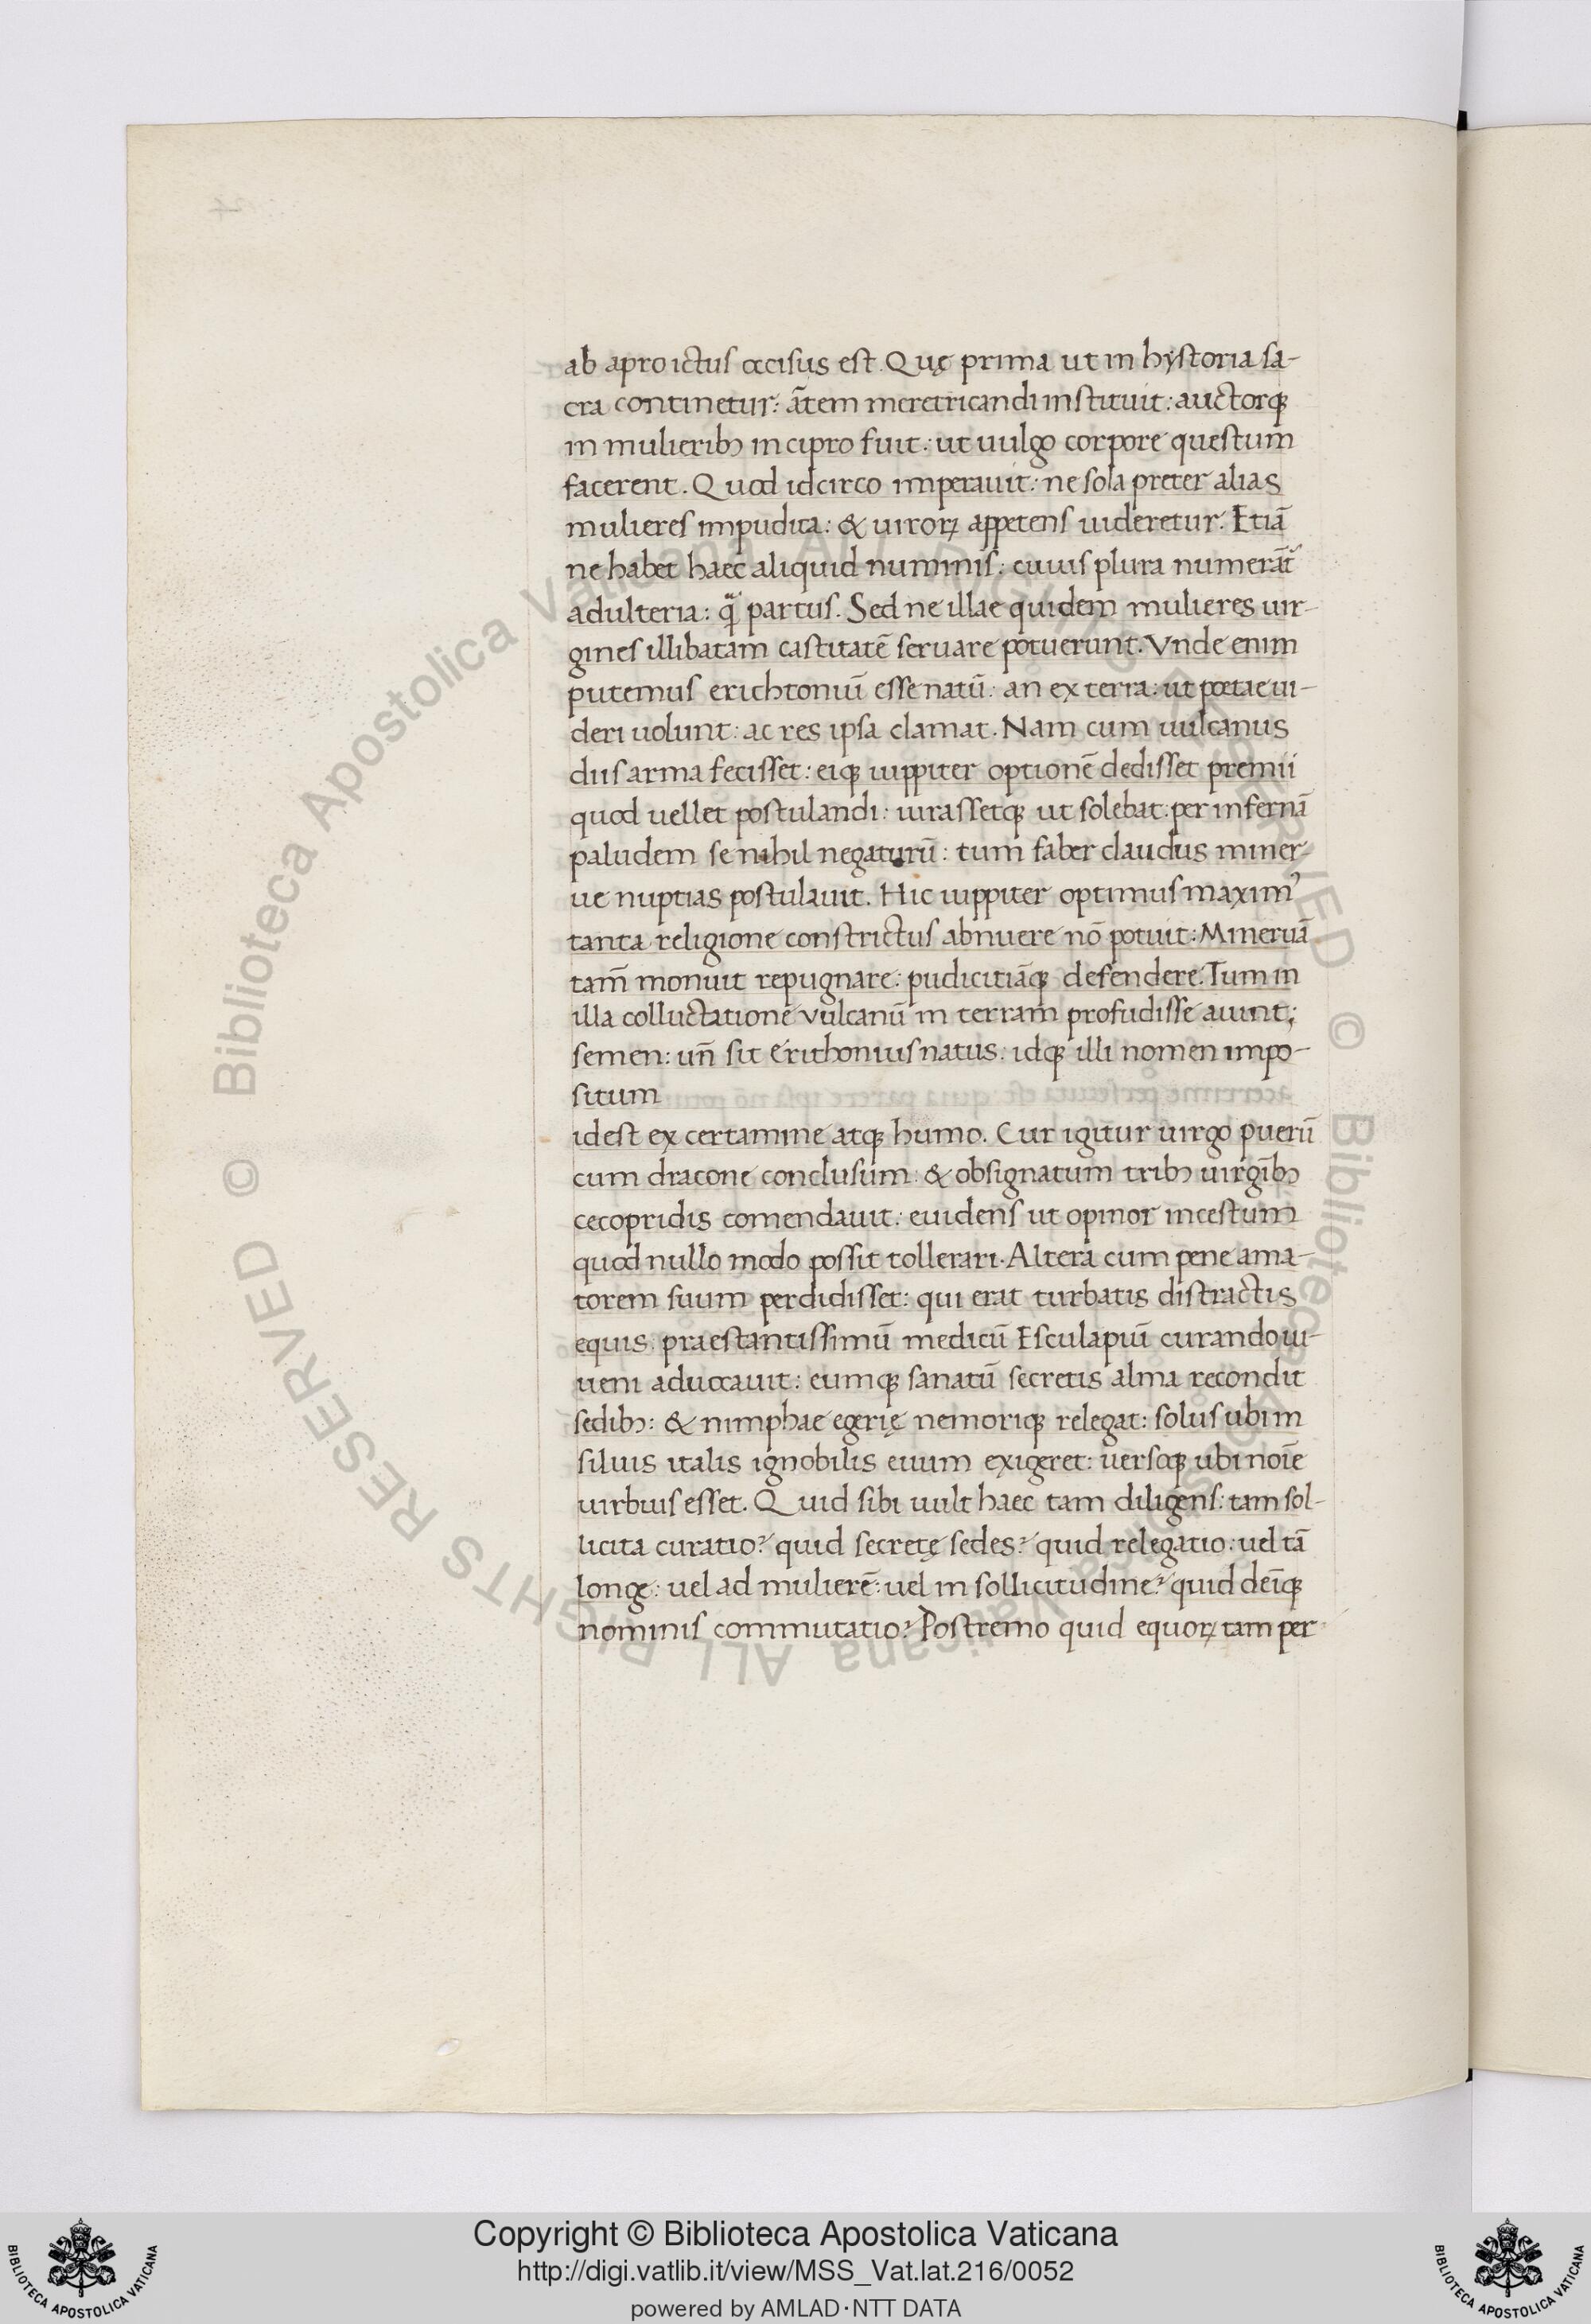 ab apro ictus occisus est. Quę prima ut in hystoria sa-
cra continetur: ãtem meretricandi instituit: auctorq;
in mulierib; in cipro fuit: ut uulgo corpore questum
facerent. Quod idcirco imperauit: ne sola preter alias
mulieres impudica: & uiroꝝ appetens uideretur. Etiã
ne habet haec aliquid numinis: cuius plura numerãt̃
adulteria: q̃ partus. Sed ne illae quidem mulieres uir-
gines illibatam castitatẽ seruare potuerunt. Vnde enim
putemus erichtoniũ esse natũ: an ex terra: ut poetae ui-
deri uolunt: ac res ipsa clamat. Nam cum uulcanus
diis arma fecisset: eiq; iuppiter optionẽ dedisset premii
quod uellet postulandi: iurassetq; ut solebat: per infernã
paludem se nihil negaturũ: tum faber claudus miner-
ue nuptias postulauit. Hic iuppiter optimus maximꝰ
tanta religione constrictus abnuere nõ potuit: Mineruã
tam̃ monuit repugnare: pudicitiãq; defendere. Tum in
illa colluctatione vulcanũ in terram profudisse aiunt;
semen: un̄ sit Erithonius natus: idq; illi nomen impo-
situm
idest ex certamine atq; humo. Cur igitur uirgo puerũ
cum dracone conclusum: & obsignatum trib; uirgĩb;
cecopridis comendauit: euidens ut opinor incestum
quod nullo modo possit tollerari. Altera cum pene ama-
torem suum perdidisset: qui erat turbatis distractis
equis: praestantissimũ medicũ Esculapiũ curando iu-
ueni aduocauit: eumq; sanatũ secretis alma recondit
sedib;: & nimphae egerię nemoriq; relegat: solus ubi in
siluis italis ignobilis euum exigeret: uersoq; ubi noĩe
uirbius esset. Quid sibi uult haec tam diligens: tam sol-
licita curatio? quid secretę sedes? quid relegatio: uel tã
longe: uel ad mulierẽ: uel in sollicitudine? quid deĩq;
nominis commutatio? Postremo quid equoꝝ tam per
Copyright © Biblioteca Apostolica Vaticana
http://digi.vatlib.it/view/MSS_Vat.lat.216/0052
powered by AMLAD·NTT DATA
BIBLIOTECA APOSTOLICA VATICANA
BIBLIOTECA APOSTOLICA VATICANA
© Biblioteca Apostolica Vaticana ALL RIGHTS RESERVED
© Biblioteca Apostolica Vaticana ALL RIGHTS RESERVED